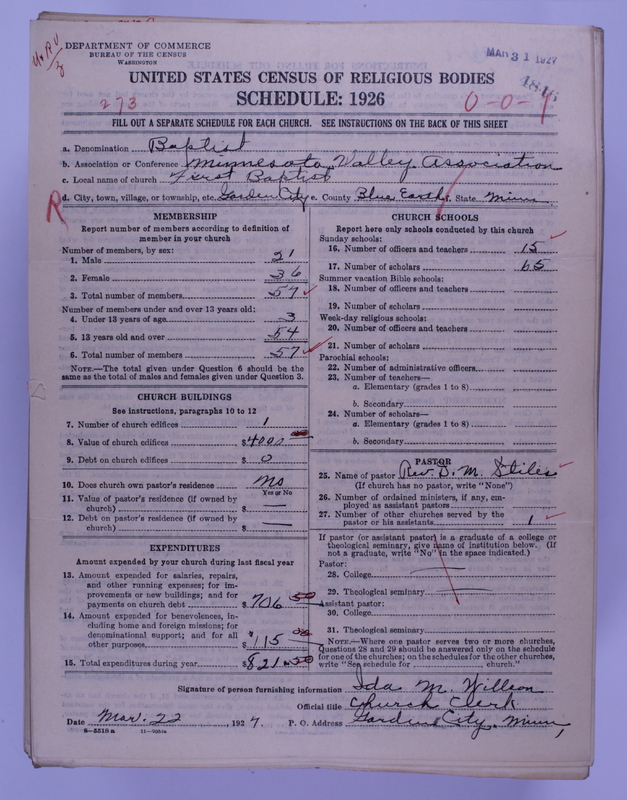 DEPARTMENT OF COMMERCE
BUREAU OF THE CENSUS
WASHINGTON
MAR 31 1927
UNITED STATES CENSUS OF RELIGIOUS BODIES
SCHEDULE: 1926
273
0-0-1
FILL OUT A SEPARATE SCHEDULE FOR EACH CHURCH. SEE INSTRUCTIONS ON THE BACK OF THIS SHEET
a. Denomination Baptist
b. Association or Conference Minnesota Valley Association
c. Local name of church First Baptist
R
d. City, town, village, or township, etc. Garden City e. County Blue Earth f. State Minn
MEMBERSHIP
Report number of members according to definition of member in your church
Number of members, by sex:
1. Male 21
2. Female 36
3. Total number of members 57
Number of members under and over 13 years old:
4. Under 13 years of age 3
5. 13 years old and over 54
6. Total number of members 57
NOTE.—The total given under Question 6 should be the same as the total of males and females given under Question 3.
CHURCH BUILDINGS
See instructions, paragraphs 10 to 12
7. Number of church edifices 1
8. Value of church edifices $4000 00
9. Debt on church edifices $ 0
10. Does church own pastor's residence No
Yes or No
11. Value of pastor's residence (if owned by church) $ —
12. Debt on pastor's residence (if owned by church) $ —
EXPENDITURES
Amount expended by your church during last fiscal year
13. Amount expended for salaries, repairs, and other running expenses; for improvements or new buildings; and for payments on church debt $706 50
14. Amount expended for benevolences, including home and foreign missions; for denominational support; and for all other purposes $115 00
15. Total expenditures during year $821.50
CHURCH SCHOOLS
Report here only schools conducted by this church
Sunday schools:
16. Number of officers and teachers 15
17. Number of scholars 65
Summer vacation Bible schools:
18. Number of officers and teachers
19. Number of scholars
Week-day religious schools:
20. Number of officers and teachers
21. Number of scholars
Parochial schools:
22. Number of administrative officers
23. Number of teachers—
a. Elementary (grades 1 to 8)
b. Secondary
24. Number of scholars—
a. Elementary (grades 1 to 8)
b. Secondary
PASTOR
25. Name of pastor Rev. D. M. Stiles
(If church has no pastor, write "None")
26. Number of ordained ministers, if any, employed as assistant pastors
27. Number of other churches served by the pastor or his assistants 1
If pastor (or assistant pastor) is a graduate of a college or theological seminary, give name of institution below. (If not a graduate, write "No" in the space indicated.)
Pastor:
28. College —
29. Theological seminary —
Assistant pastor:
30. College
31. Theological seminary
NOTE.—Where one pastor serves two or more churches, Questions 28 and 29 should be answered only on the schedule for one of the churches; on the schedules for the other churches, write "See schedule for ........ church."
Signature of person furnishing information Ida M. Willson
Official title Church Clerk
Date Mar. 22, 1927. P. O. Address Garding City, Minn,
8-5518a 11-